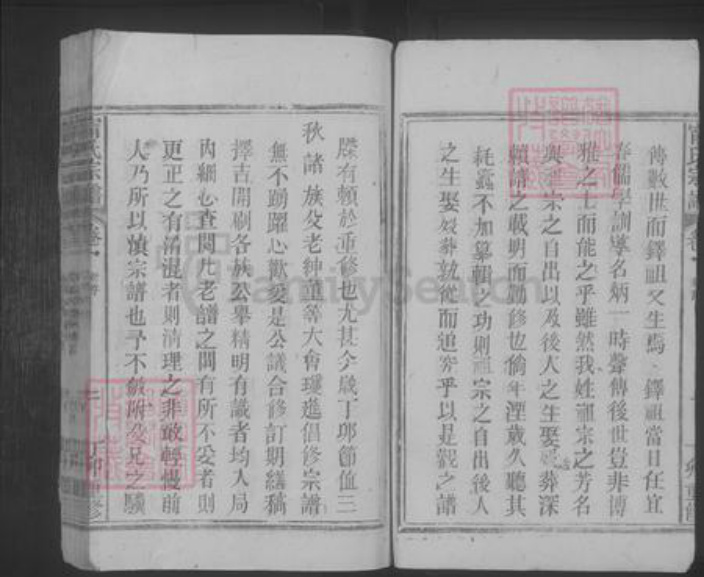 傳數世而鐸祖又生焉鐸祖當日任宜
春儒學訓導名炳一時聲傳後世豈非博
雅之士而能之乎雖然我姓祖宗之芳名
與祖宗之自出以及後人之生娶葬深
賴譜之載明而勤修也倘年湮歲久聽其
耗蠹不加纂輯之功則祖宗之自出後人
之生娶殁葬孰從而追究乎以是觀之譜
牒有賴於重修也尤甚今歲丁卯節值三
秋諸族父老紳董等大會璣進倡修宗譜
無不踴躍心歡爰是公議合修訂期繕稿
擇吉開刷各族公舉精明有識者均入局
內細心查閱凡老譜之間有所不妥者則
更正之有清混者則清理之非敢輕慢前
人乃所以慎宗譜也予不敏附父兄之驥
甯氏宗譜
卷
丁卯重修
FamilySearch